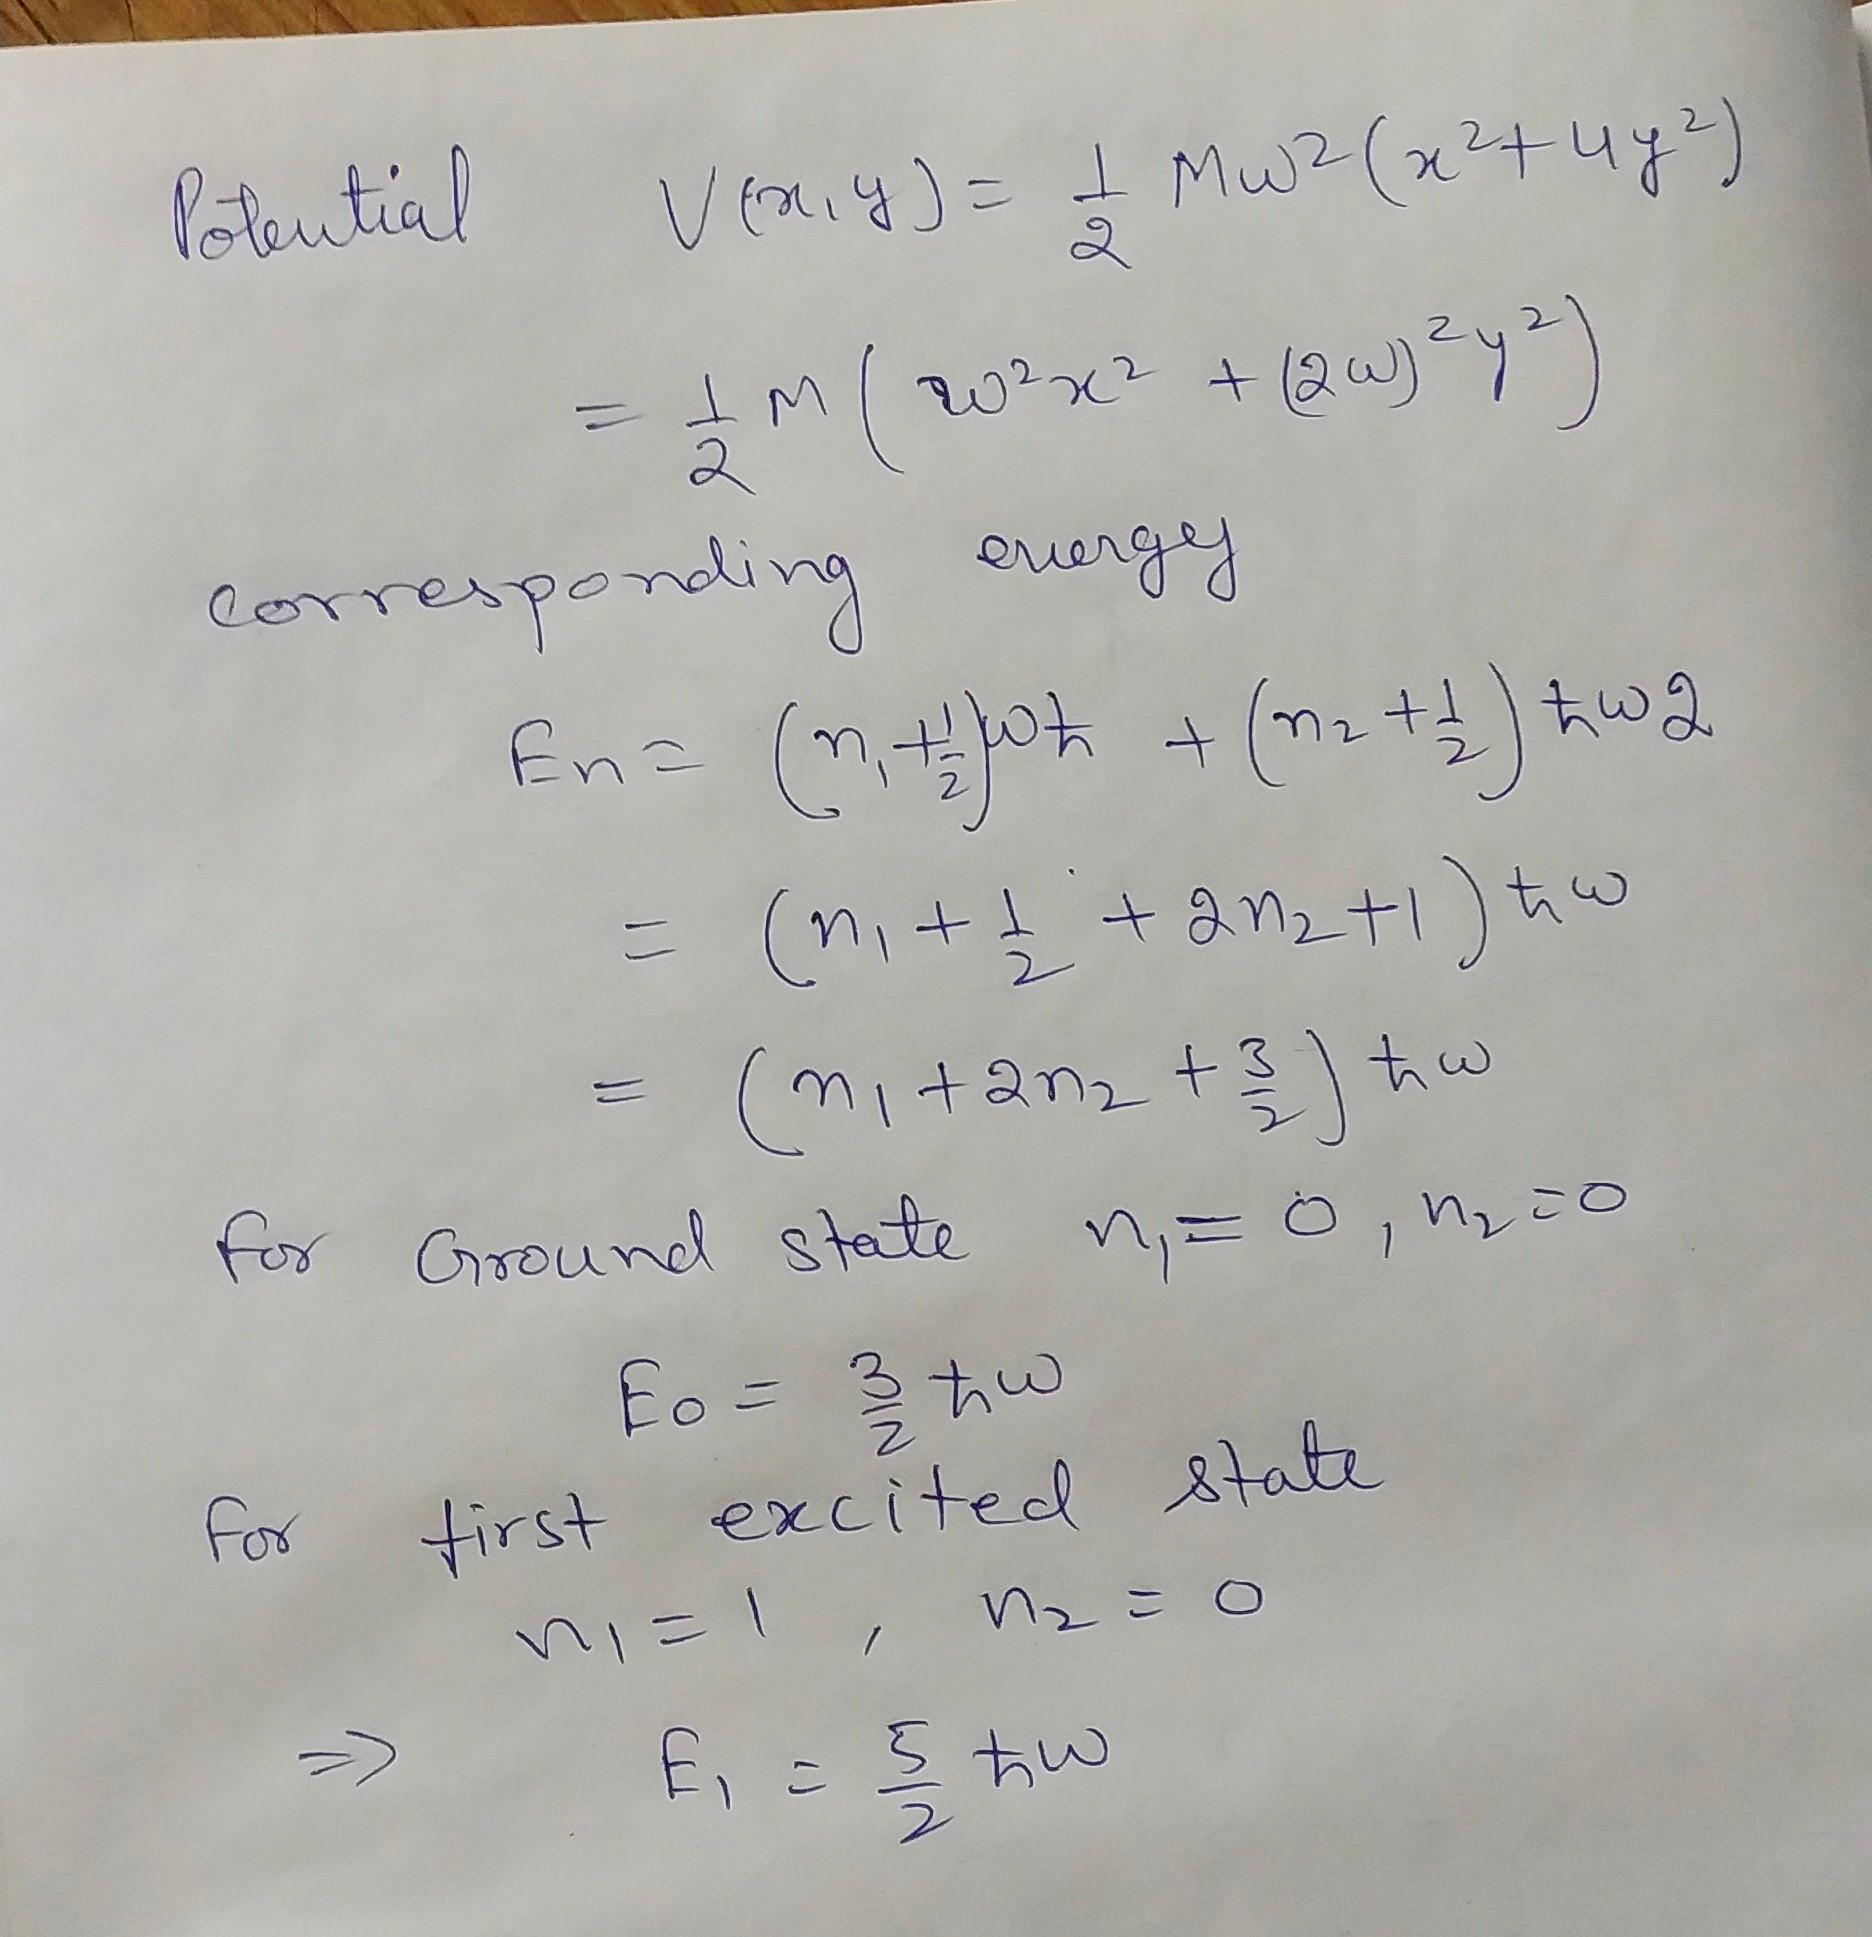 Potential V(x,y) = 1/2 Mω²(x²+4y²)
= 1/2 M(ω²x² + (2ω)²y²)
corresponding energy
En = (n₁+1/2)ωħ + (n₂+1/2)ħω2
= (n₁+1/2+2n₂+1)ħω
= (n₁+2n₂+3/2)ħω
for Ground state n₁=0, n₂=0
E0 = 3/2 ħω
For first excited state
n₁=1, n₂=0
=> E₁ = 5/2 ħω